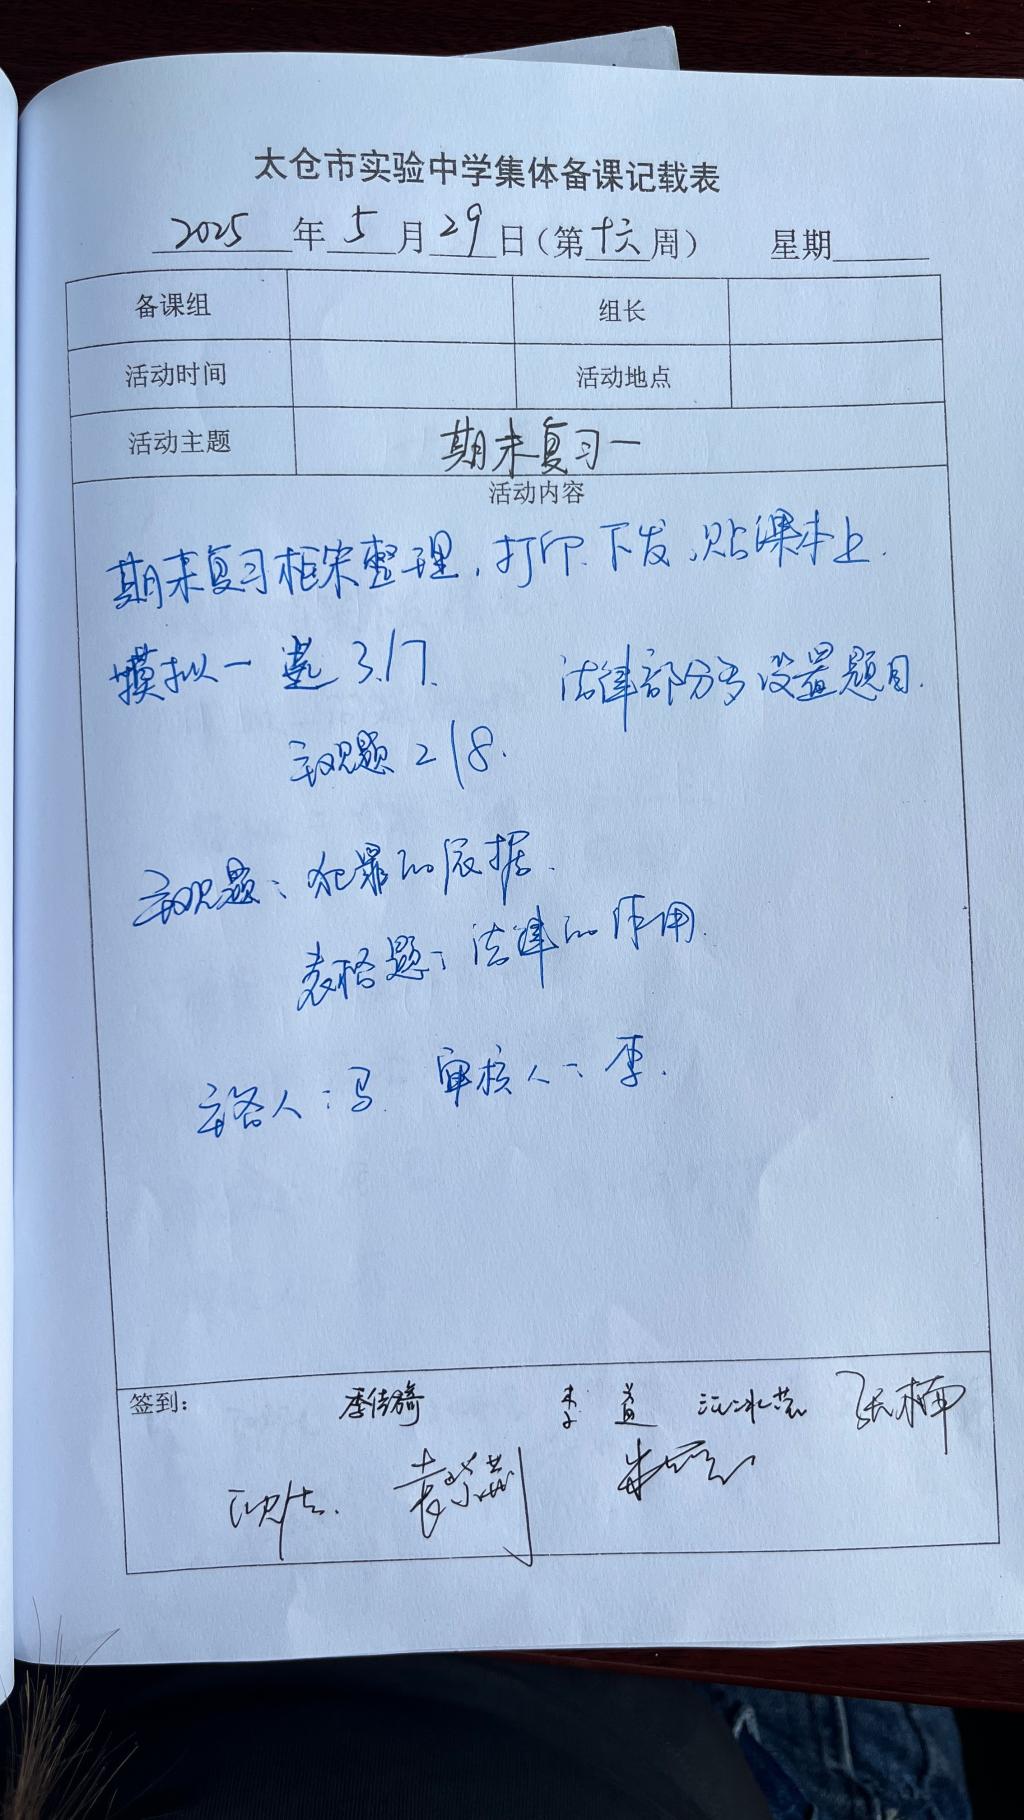 太仓市实验中学集体备课记载表
2025年5月29日(第十六周) 星期
备课组 组长
活动时间 活动地点
活动主题 期末复习一
活动内容
期末复习框架整理,打印.下发,贴课本上.
模拟一 选 3.17. 法律部分多设置题目.
主观题 2 18.
主观题:犯罪的依据.
表格题:法律的作用.
主备人:马 审核人:李.
签到: 季倩琦 李 张楠